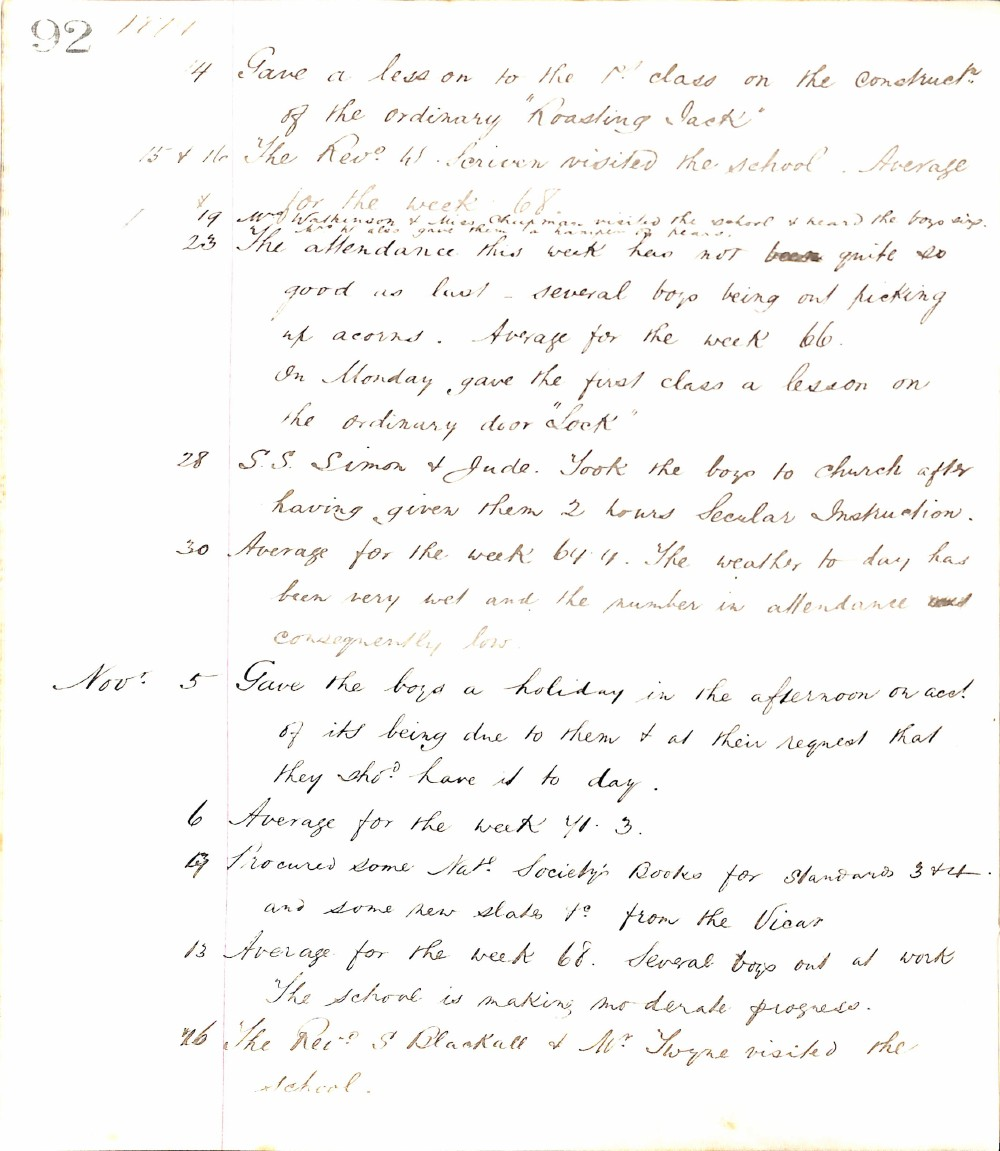 92
4 Gave a lesson to the 1st class on the constructn
of the ordinary "Roasting Jack"
15 & 16 The Revd W. Scriven visited the school. Average
for the week 68
19 Mrs Watkinson & Miss Chapman visited the school & heard the boys sing.
Mrs W also gave them a hamper of pears.
23 The attendance this week has not been quite so
good as last - several boys being out picking
up acorns. Average for the week 66.
On Monday gave the first class a lesson on
the ordinary door "Lock"
28 S.S. Simon & Jude. Took the boys to church after
having given them 2 hours Secular Instruction.
30 Average for the week 64.4. The weather to day has
been very wet and the number in attendance
consequently low.
Novr 5 Gave the boys a holiday in the afternoon on acct
of its being due to them & at their request that
they shod have it to day.
6 Average for the week 71.3.
Procured some Natl Society's Books for Standards 3 & 4
and some new slates &c from the Vicar
13 Average for the week 68. Several boys out at work
The school is making moderate progress.
26 The Revd S Blackall & Mr Twyne visited the
school.